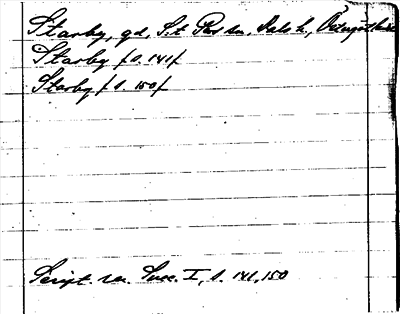 Starby, gd, S:t Per sn, Dals h., Östergötland
Starby /s. 141/
Starby / s. 150/
Script. rer. Suec. I, s. 141, 150